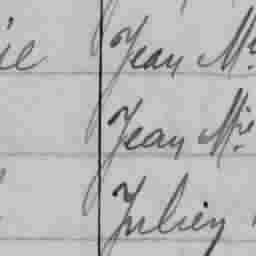 ie Jean Me
Jean Mie
Julien